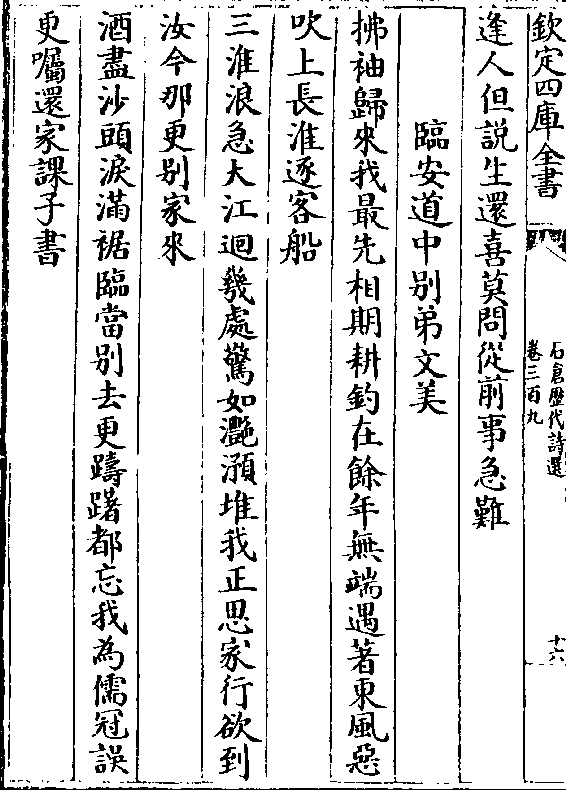 欽定四庫全書
石倉歴代詩選
卷三百九
十六
逢人但説生還喜莫問從前事急難
臨安道中别弟文美
拂袖歸來我最先相期耕釣在餘年無端遇著東風惡
吹上長淮逐客船
三淮浪急大江迴幾處驚如灔澦堆我正思家行欲到
汝今那更别家來
酒盡沙頭淚滿裾臨當别去更躊躇都忘我為儒冠誤
更囑還家課子書